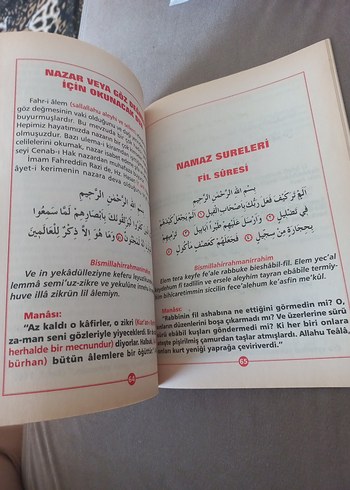 NAZAR VEYA GÖZ
İÇİN OKUNACAK
Fahr-i âlem (sallallahu aleyhi ve sellem)
göz değmesinin vaki olduğunu
buyurmuşlardır. Bu mevzuda bir çok
Hepimiz hayatımızda nazarın bir çok
olmuşuzdur. Bazı ulema-i kiramdan
celilelerini okumak, nazar isabet
seyi Cenab-ı Hak nazardan muhafaza
İmam Fahreddin Razi de, Hz.
âyet-i kerimenin nazara deva olduğu
بِسْمِ اللهِ الرَّحْمٰنِ الرَّحِيمِ
كَفَرُوا لَيُزْلِقُونَكَ بِأَبْصَارِهِمْ لَمَّا سَمِعُوا
وَمَا هُوَ إِلَّا ذِكْرٌ لِلْعَالَمِينَ
Bismillâhirrahmanirrahim
Ve in yekâdülleziyne keferu
lemmâ semi'uz-zikre ve yekulûne
huve illâ zikrün lil âlemiyn.
Manâsı:
"Az kaldı o kâfirler, o zikri (Kur'an-
za-man seni gözleriyle yiyeceklerdi. Bir
herhalde bir mecnundur) diyorlar. Halbuki
bürhan) bütün âlemlere bir öğüttür."
64
NAMAZ SURELERİ
FİL SÛRESİ
بِسْمِ اللهِ الرَّحْمٰنِ الرَّحِيمِ
أَلَمْ تَرَ كَيْفَ فَعَلَ رَبُّكَ بِأَصْحَابِ الْفِيلِ أَلَمْ يَجْعَلْ كَيْدَهُمْ
فِي تَضْلِيلٍ وَأَرْسَلَ عَلَيْهِمْ طَيْرًا أَبَابِيلَ تَرْمِيهِمْ
بِحِجَارَةٍ مِنْ سِجِّيلٍ فَجَعَلَهُمْ كَعَصْفٍ مَأْكُولٍ
Bismillâhirrahmanirrahim
Elem tera keyfe fe'ale rabbuke bieshâbil-fil. Elem yec'al
keydehum fî tadlilin ve ersele aleyhim tayran ebâbile termiy-
him bihicaretimmin siccilin fece'alehum ke'asfin me'kûl.
Manâsı:
"Rabbinin fil ashabına ne ettiğini görmedin mi? O,
onların düzenlerini boşa çıkarmadı mı? Ve üzerlerine sürü
sürü ebâbil kuşları göndermedi mi? Ki her biri onlara
ateşte pişirilmiş çamurdan taşlar atmışlardı. Allahu Teâlâ,
onları kurt yeniği yaprağa çeviriverdi."
65